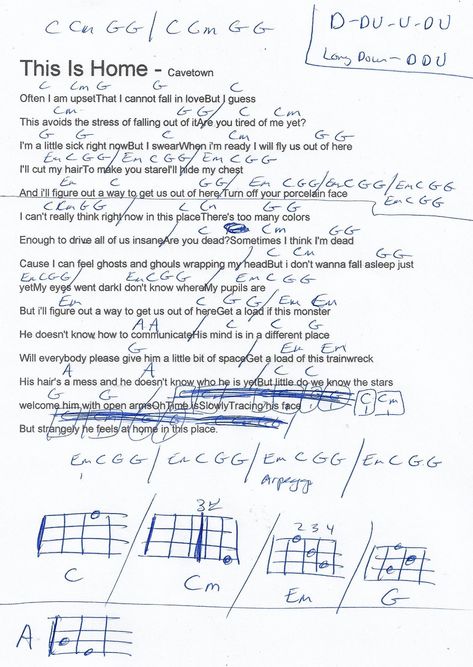 C Cm GG / C Cm G G
D-DU-U-DU
Long Down - DDU
This Is Home - Cavetown
C Cm G G C
Often I am upsetThat I cannot fall in loveBut I guess
Cm G G C Cm
This avoids the stress of falling out of itAre you tired of me yet?
G G C Cm G G
I'm a little sick right nowBut I swearWhen i'm ready I will fly us out of here
Em C G G / Em C G G / Em C G G
I'll cut my hairTo make you stareI'll hide my chest
Em C G G / Em C G G / Em C G G / Em C G G
And i'll figure out a way to get us out of here/Turn off your porcelain face
C Cm G G C Cm Em C G G
I can't really think right now in this placeThere's too many colors
G G C Cm G G
Enough to drive all of us insaneAre you dead?Sometimes I think I'm dead
C Cm G G
Cause I can feel ghosts and ghouls wrapping my headBut i don't wanna fall asleep just
Em C G G Em C G G Em C G G
yetMy eyes went darkI don't know whereMy pupils are
Em C G G Em Em
But i'll figure out a way to get us out of hereGet a load if this monster
A A C C G
He doesn't know how to communicateHis mind is in a different place
G Em Em
Will everybody please give him a little bit of spaceGet a load of this trainwreck
A A C C
His hair's a mess and he doesn't know who he is yetBut little do we know the stars
G G C Cm
welcome him with open armsOhTime isSlowlyTracing his face
But strangely he feels at home in this place.
Em C G G / Em C G G / Em C G G / Em C G G
Arpegg
C
Cm
2 3 4
Em
G
A